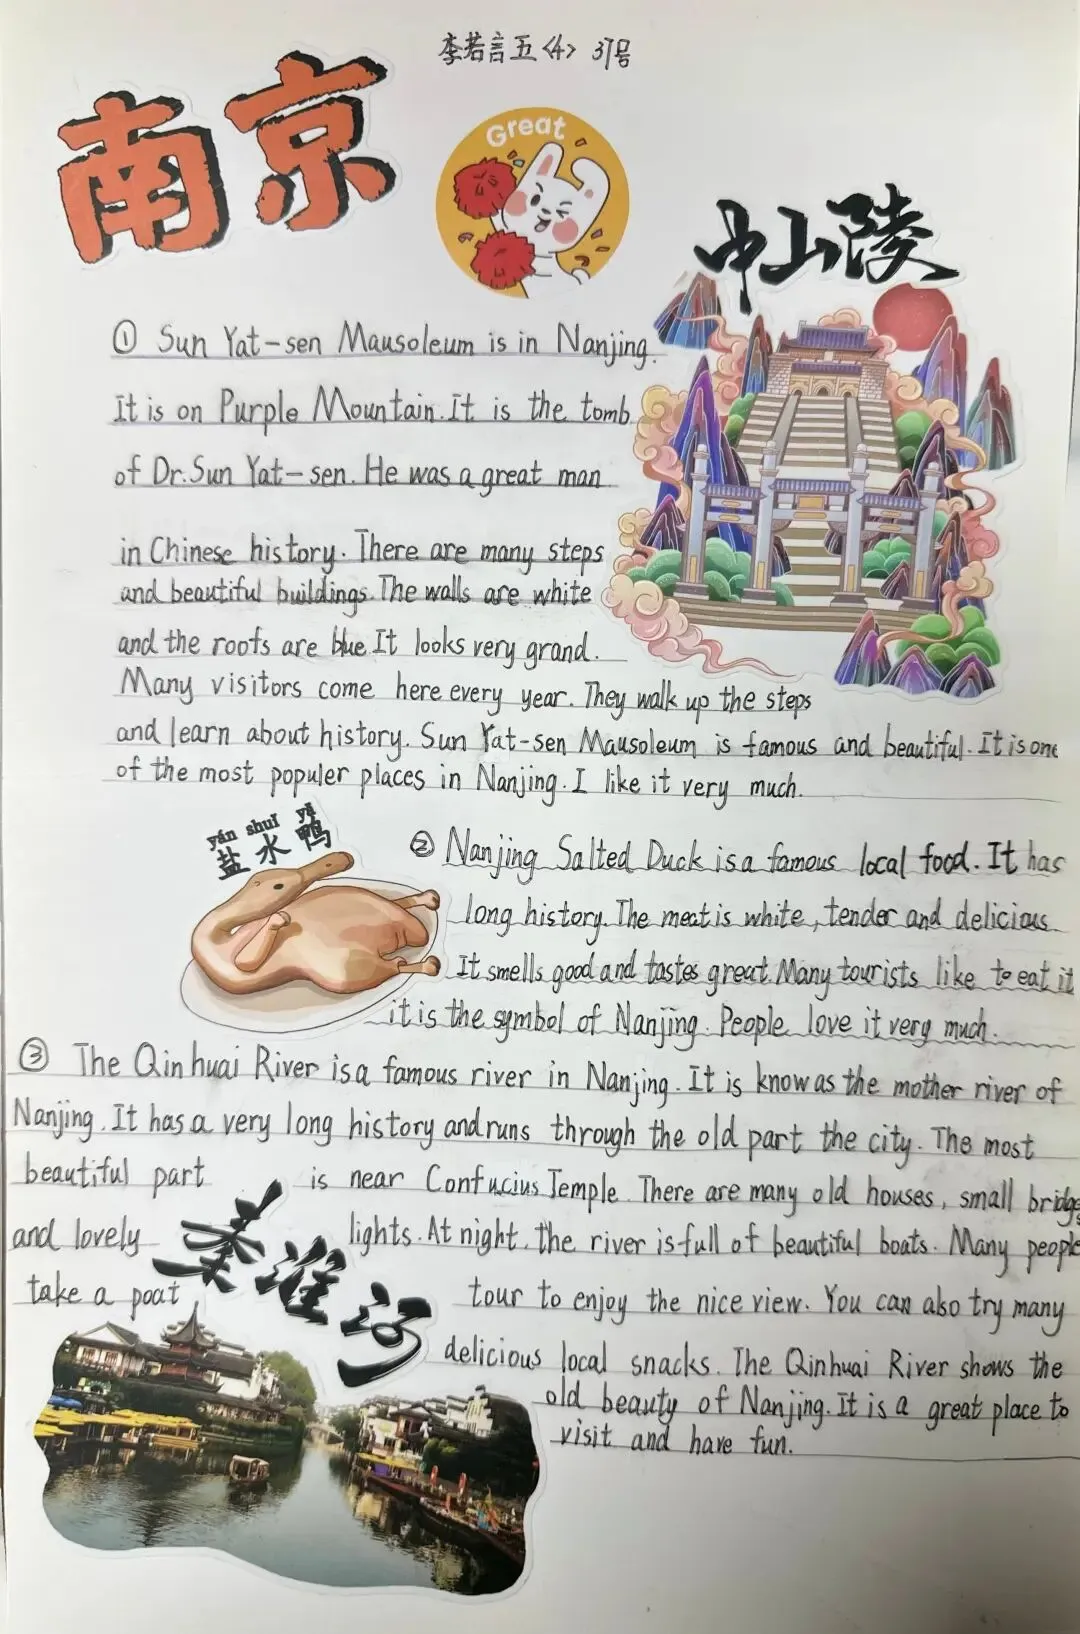 李若言五<4> 37号
南京
Great
中山陵
① Sun Yat-sen Mausoleum is in Nanjing.
It is on Purple Mountain. It is the tomb
of Dr.Sun Yat-sen. He was a great man
in Chinese history. There are many steps
and beautiful buildings. The walls are white
and the roofs are blue. It looks very grand.
Many visitors come here every year. They walk up the steps
and learn about history. Sun Yat-sen Mausoleum is famous and beautiful. It is one
of the most populer places in Nanjing. I like it very much.
yán shuǐ yā
盐水鸭
② Nanjing Salted Duck is a famous local food. It has
long history. The meat is white, tender and delicious
It smells good and tastes great. Many tourists like to eat it
it is the symbol of Nanjing. People love it very much.
③ The Qinhuai River is a famous river in Nanjing. It is know as the mother river of
Nanjing. It has a very long history and runs through the old part the city. The most
beautiful part is near Confucius Temple. There are many old houses, small bridges
and lovely lights. At night, the river is full of beautiful boats. Many people
take a poat tour to enjoy the nice view. You can also try many
秦淮河
delicious local snacks. The Qinhuai River shows the
old beauty of Nanjing. It is a great place to
visit and have fun.